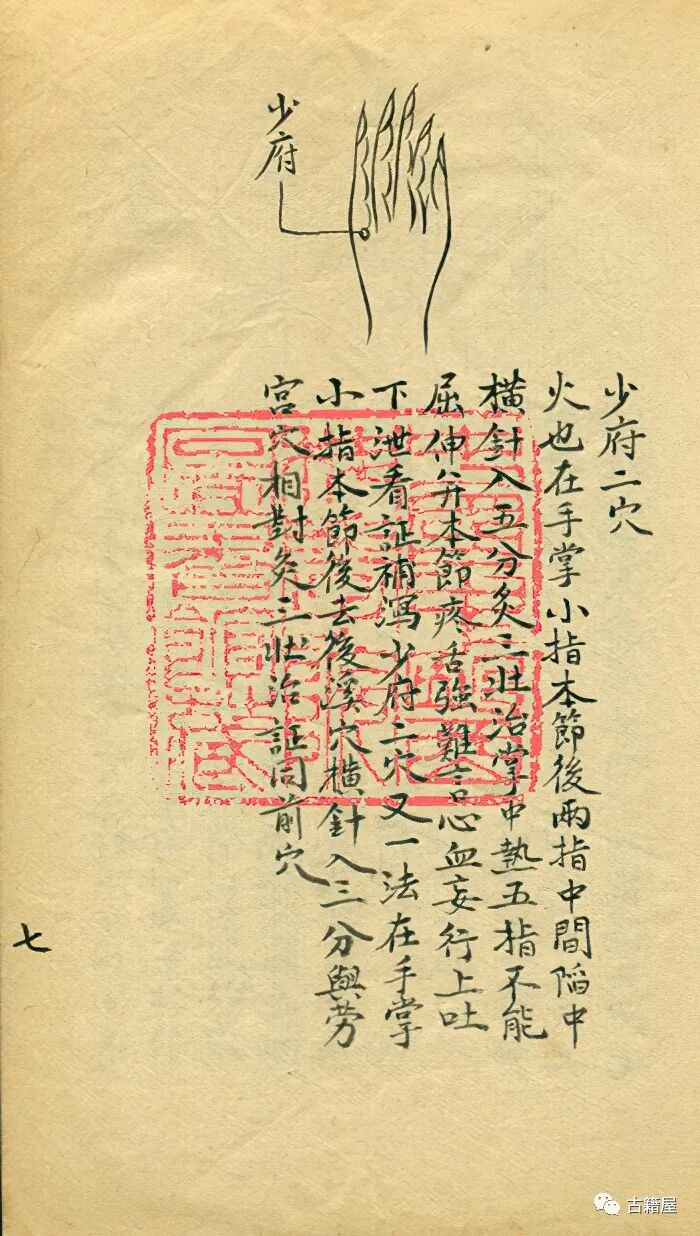 少府
少府二穴
火也在手掌小指本節後兩指中間陷中
橫針入五分灸三壯治掌中熱五指不能
屈伸并本節疼舌強難言心血妄行上吐
下泄看証補瀉少府二穴又一法在手掌
小指本節後去後溪穴橫針入三分與勞
宮穴相對灸三壯治証同前穴
七
古籍屋